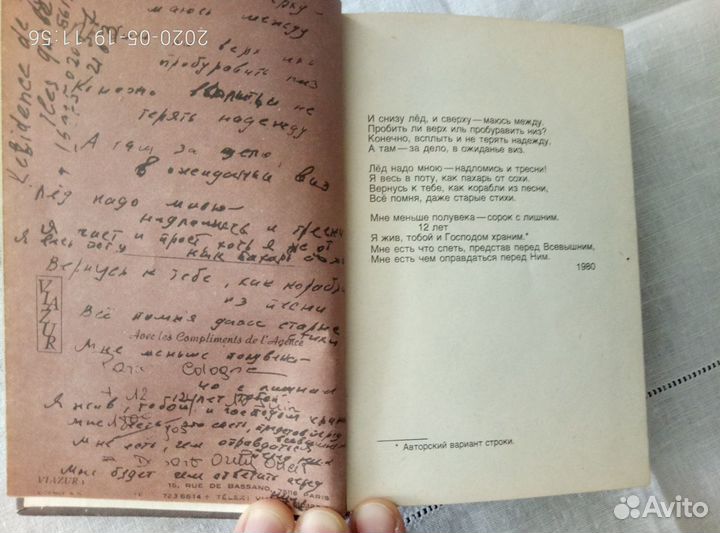 2020-05-19 11:56
маюсь между
верх иль
пробуравить низ
Конечно всплыть и не
терять надежду
А там за дело,
в ожиданьи виз
Лёд надо мною
надломись и тресни
Я чист и прост хоть я не от
Я весь в поту
Вернусь к тебе, как корабли
из песни
Всё помня даже старые
стихи
VIAZUR
Avec les Compliments de l'Agence
Мне меньше полувека
Cologne
с лишним
Я жив, тобой и господом храним
Мне есть, чем оправдаться
Мне будет чем ответить перед
ним
VIAZUR
15, RUE DE BASSANO, 75116 PARIS
723 6614 + TELEX
И снизу лёд, и сверху — маюсь между.
Пробить ли верх иль пробуравить низ?
Конечно, всплыть и не терять надежду,
А там — за дело, в ожиданье виз.
Лёд надо мною — надломись и тресни!
Я весь в поту, как пахарь от сохи.
Вернусь к тебе, как корабли из песни,
Всё помня, даже старые стихи.
Мне меньше полувека — сорок с лишним.
12 лет
Я жив, тобой и Господом храним.*
Мне есть что спеть, представ перед Всевышним,
Мне есть чем оправдаться перед Ним.
1980
* Авторский вариант строки.
Avito